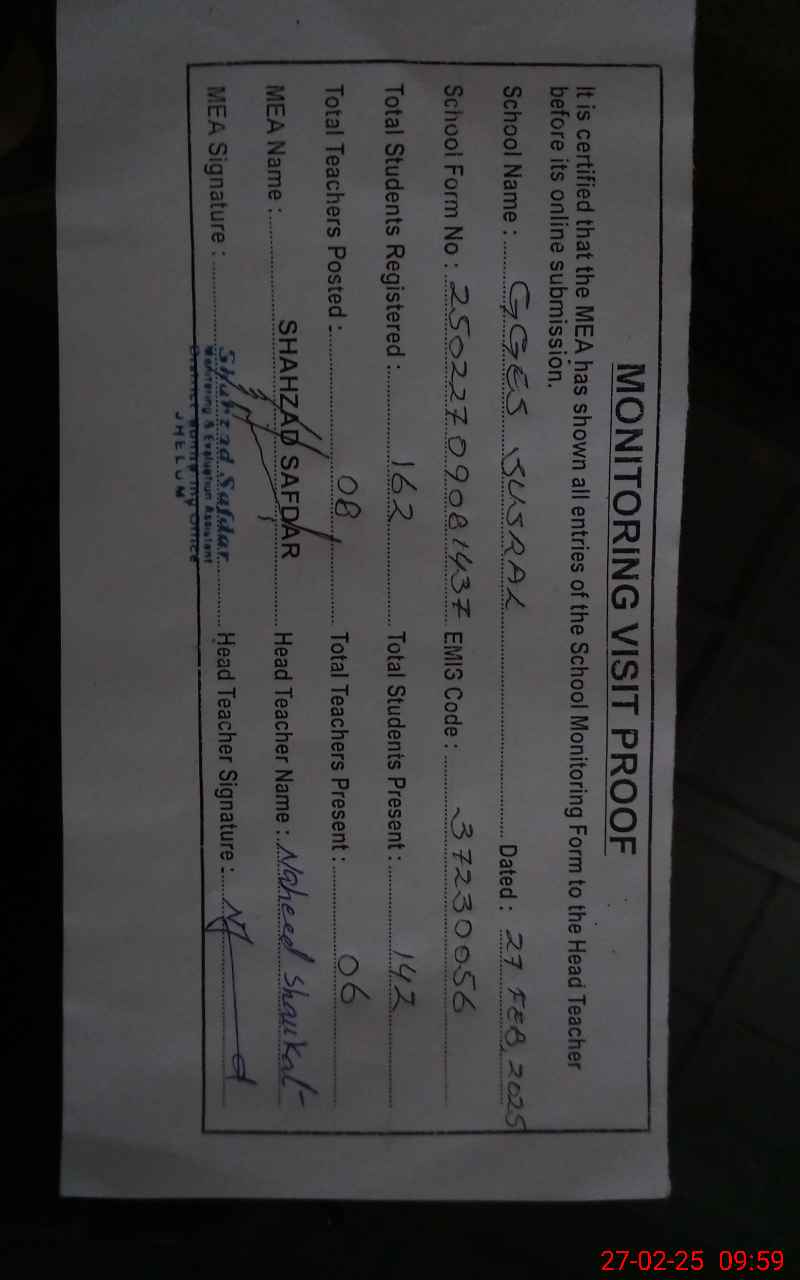 MONITORING VISIT PROOF
It is certified that the MEA has shown all entries of the School Monitoring Form to the Head Teacher
before its online submission.
School Name : GGES SUSRAL Dated : 27 FEB, 2025
School Form No : 2502270909081437 EMIS Code : 37230056
Total Students Registered : 162 Total Students Present : 142
Total Teachers Posted : 08 Total Teachers Present : 06
MEA Name : SHAHZAD SAFDAR Head Teacher Name : Naheed Shaukat
MEA Signature : Head Teacher Signature :
Shahzad Safdar
Monitoring & Evaluation Assistant
District Monitoring Office
JHELUM
27-02-25 09:59